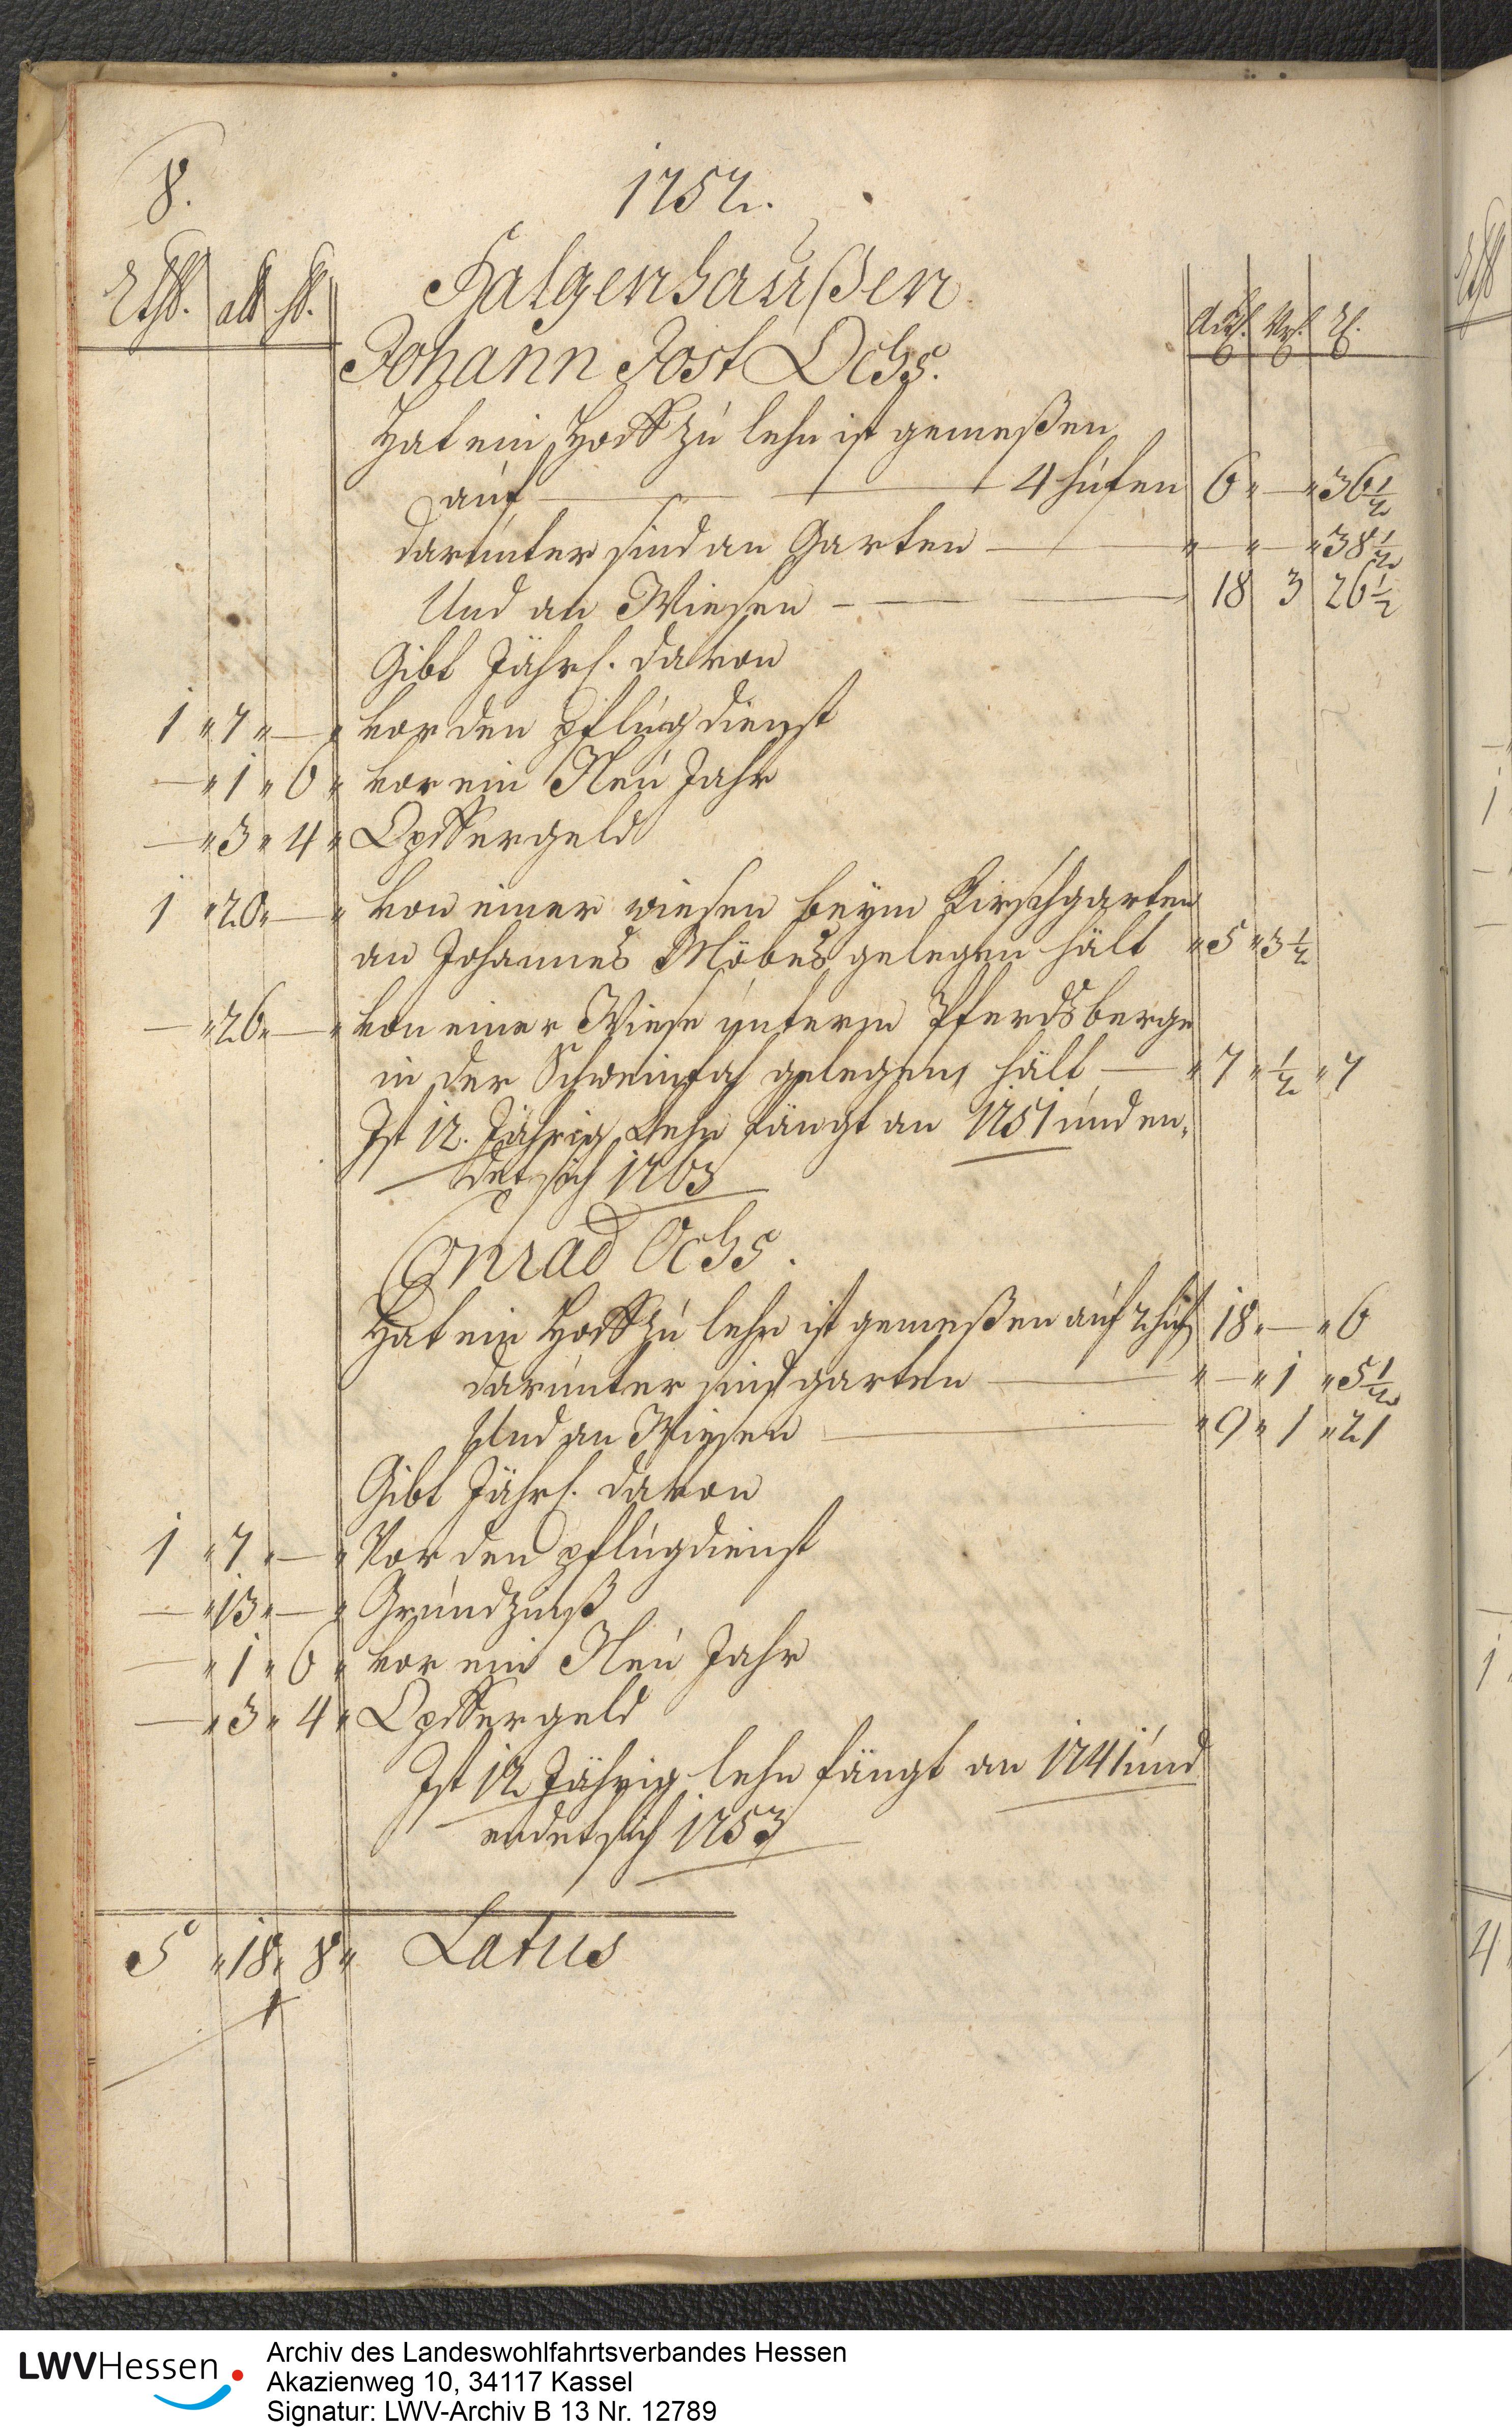 8.
1752.
Rthl. alb hl.
Halgenhaußen
Ack. Vrt. R.
Johann Jost Ochs.
Hat ein Hoff zu lehn ist gemeßen
auf — 4 hufen 6 " — " 36 1/2
darunter sind an Garten — " — " — " 38 1/2
Und an Wiesen — 18 3 26 1/2
Gibt Jährl. davon
1 " 7 " — " vor den pflugdienst
— " 1 " 6 " vor ein Neu Jahr
— " 3 " 4 " Opffergeld
1 " 20 " — " von einer wiesen beym Kirschgarten
an Johannes Möbus gelegen hält " 5 " 3 1/2
— " 26 " — " von einer Wiese unterm Pferdsberge
in der gelegen hält — " 7 " 1/2 " 7
Ist 12. Jährig Lehn fängt an 1751 und en,
det sich 1763
Conrad Ochs.
Hat ein Hoff zu lehn ist gemeßen auf 2 huf 18 " — " 6
darunter sind garten — " — " 1 " 5 1/2
Und an Wiesen — " 9 " 1 " 21
Gibt Jährl. davon
1 " 7 " — " Vor den pflugdienst
— " 13 " — " Grundzinß
— " 1 " 6 " vor ein Neu Jahr
— " 3 " 4 " Opffergeld
Ist 12 Jährig lehn fängt an 1741 und
endet sich 1753
5 " 18 " 8 " Latus
LWVHessen
Archiv des Landeswohlfahrtsverbandes Hessen
Akazienweg 10, 34117 Kassel
Signatur: LWV-Archiv B 13 Nr. 12789